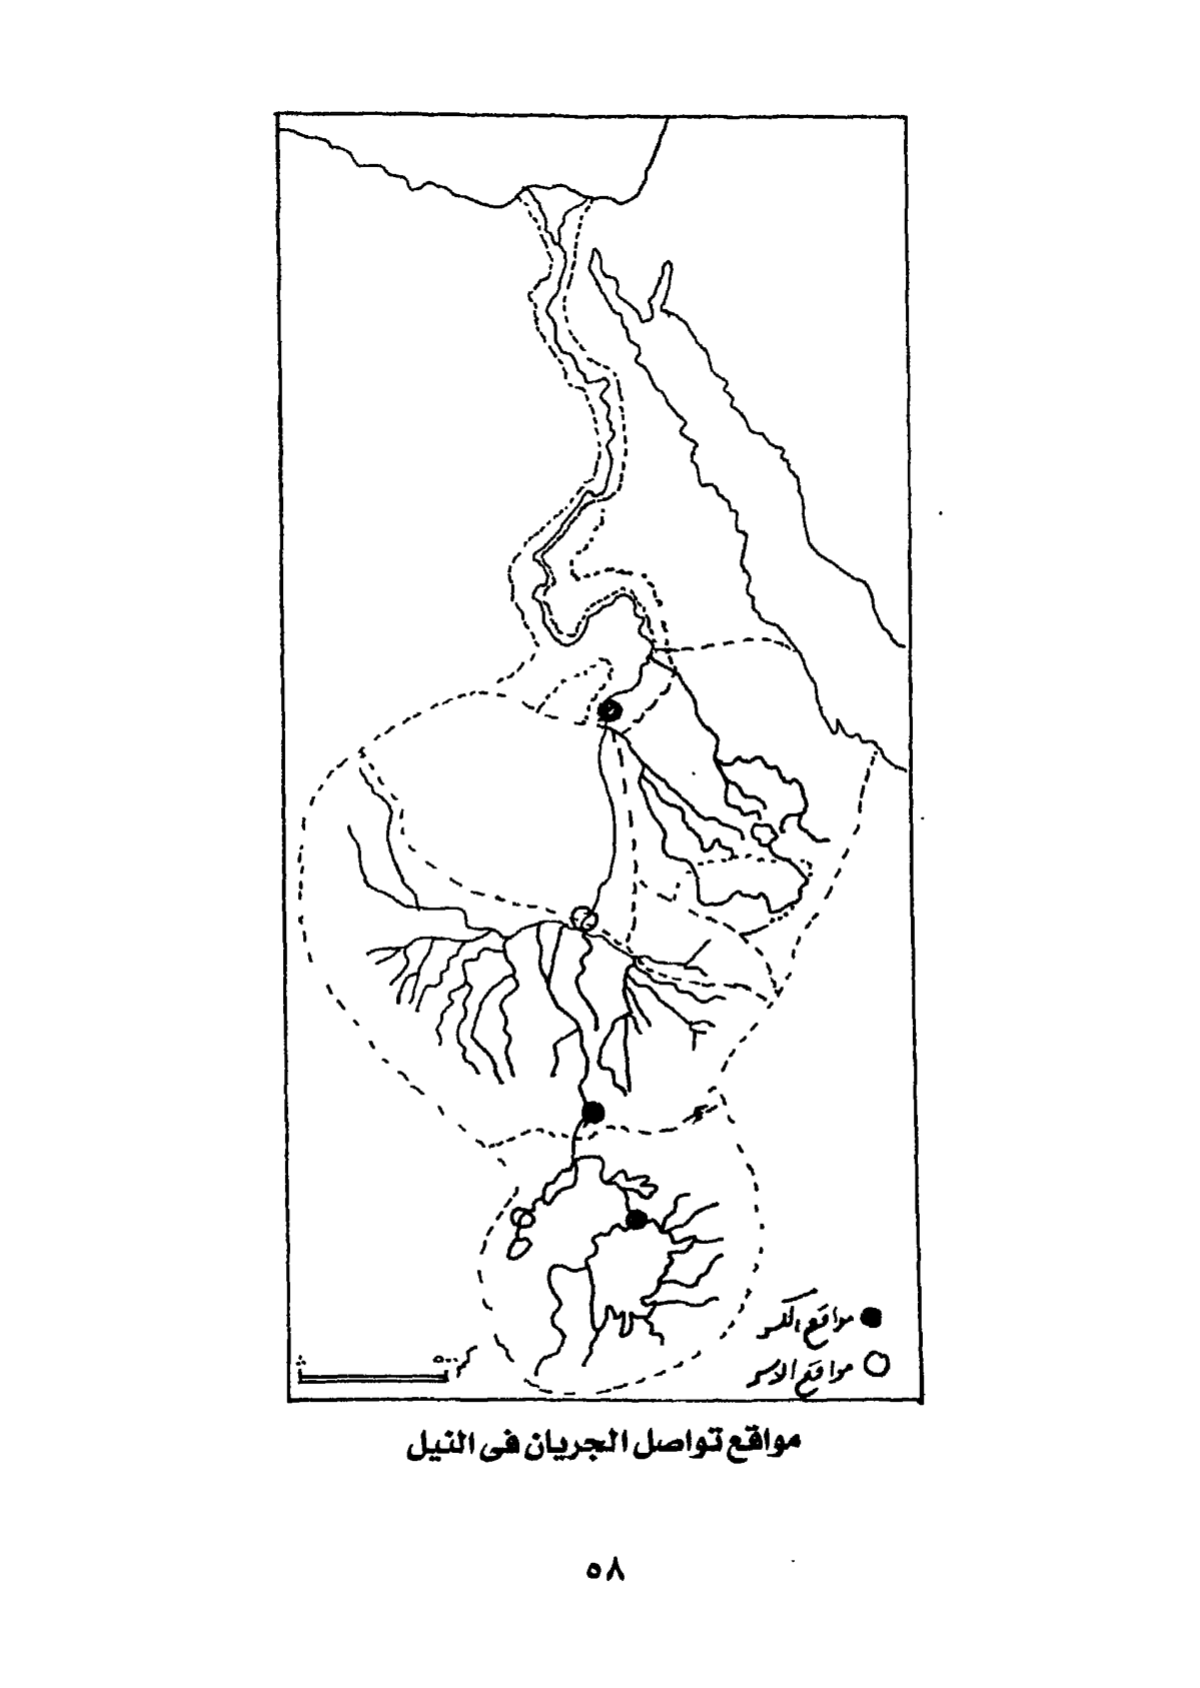 مواقع الكسر
مواقع الاسر
مواقع تواصل الجريان فى النيل
٥٨